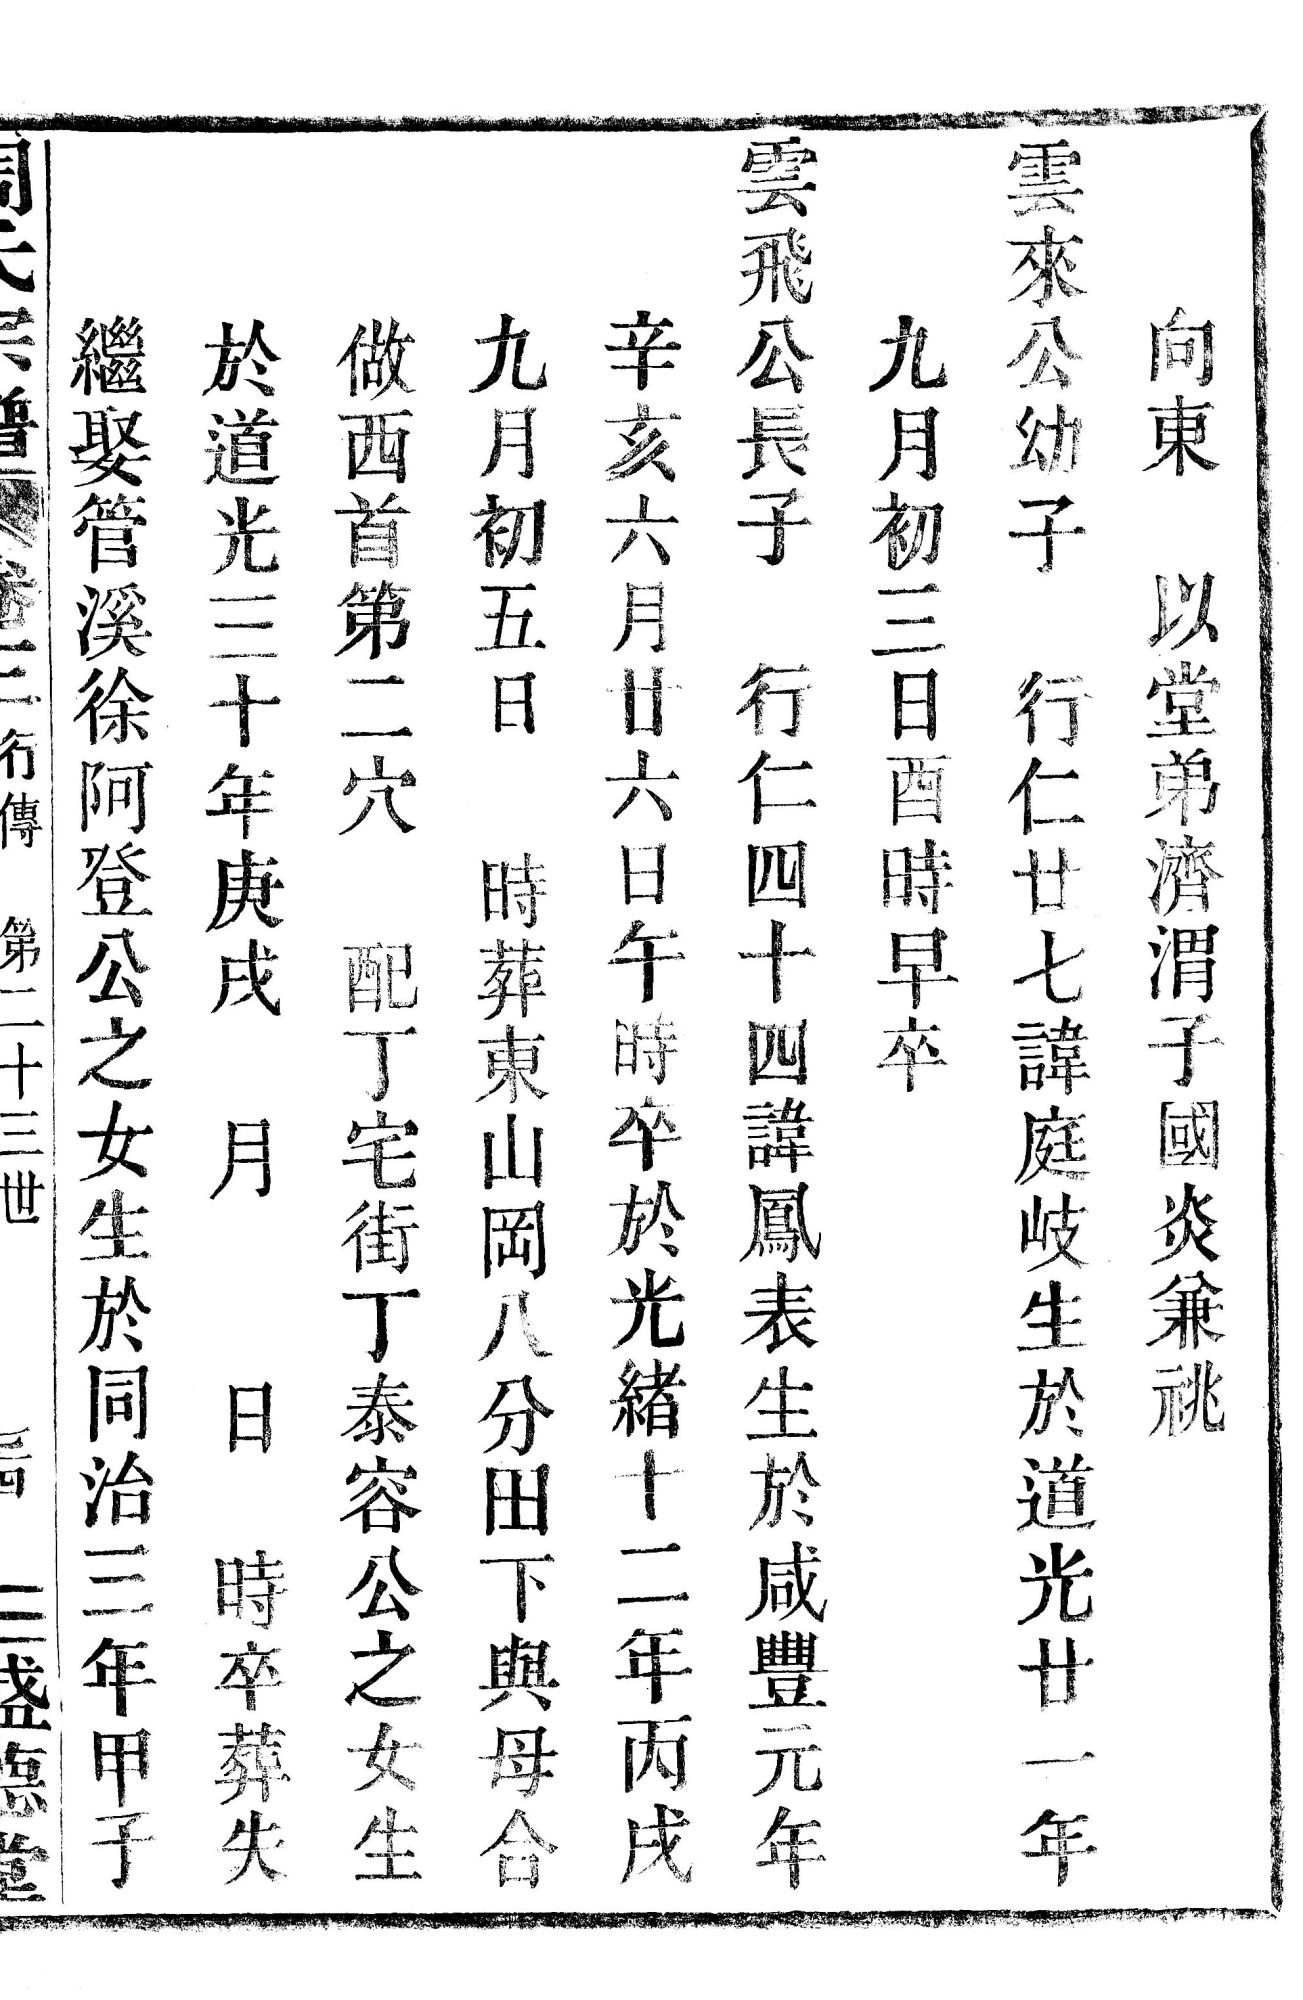 向東　以堂弟濟渭子國炎兼祧
雲來公幼子　行仁廿七諱庭岐生於道光廿一年
九月初三日酉時早卒
雲飛公長子　行仁四十四諱鳳表生於咸豐元年
辛亥六月廿六日午時卒於光緒十二年丙戌
九月初五日　時葬東山岡八分田下與母合
做西首第二穴　配丁宅街丁泰容公之女生
於道光三十年庚戌　月　　日　時卒葬失
繼娶管溪徐阿登公之女生於同治三年甲子
周氏宗譜　卷二行傳　第二十三世　　盛德堂